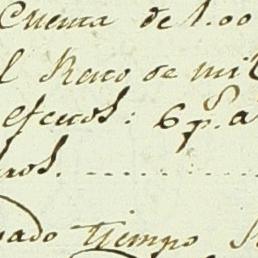 Cuenta de 1.00
l Reno de mil
efectos: 6 p.º a
ros.
ado tiempo